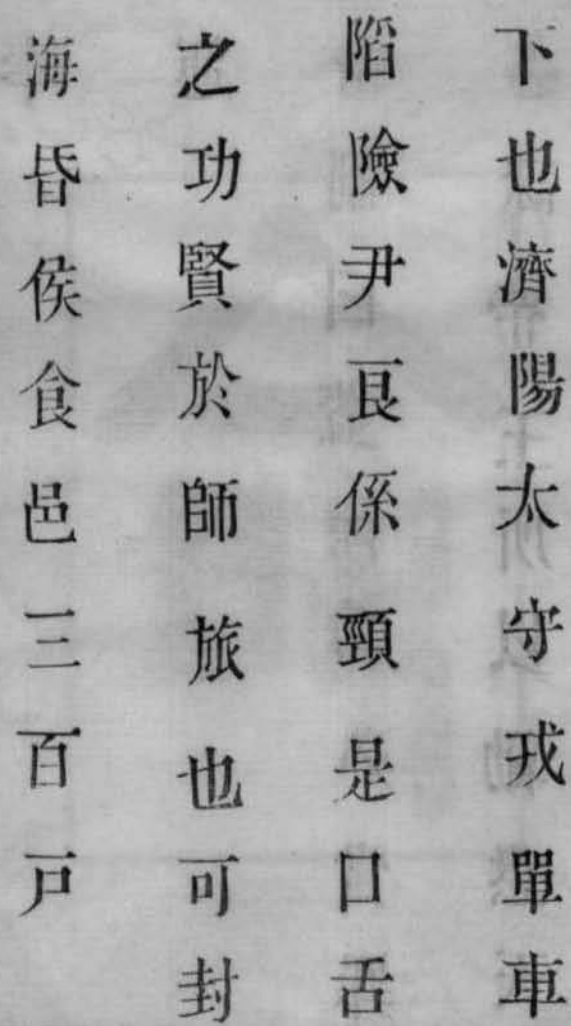 下也濟陽太守戎單車
陷險尹良係頸是口舌
之功賢於師旅也可封
海昏侯食邑三百戸